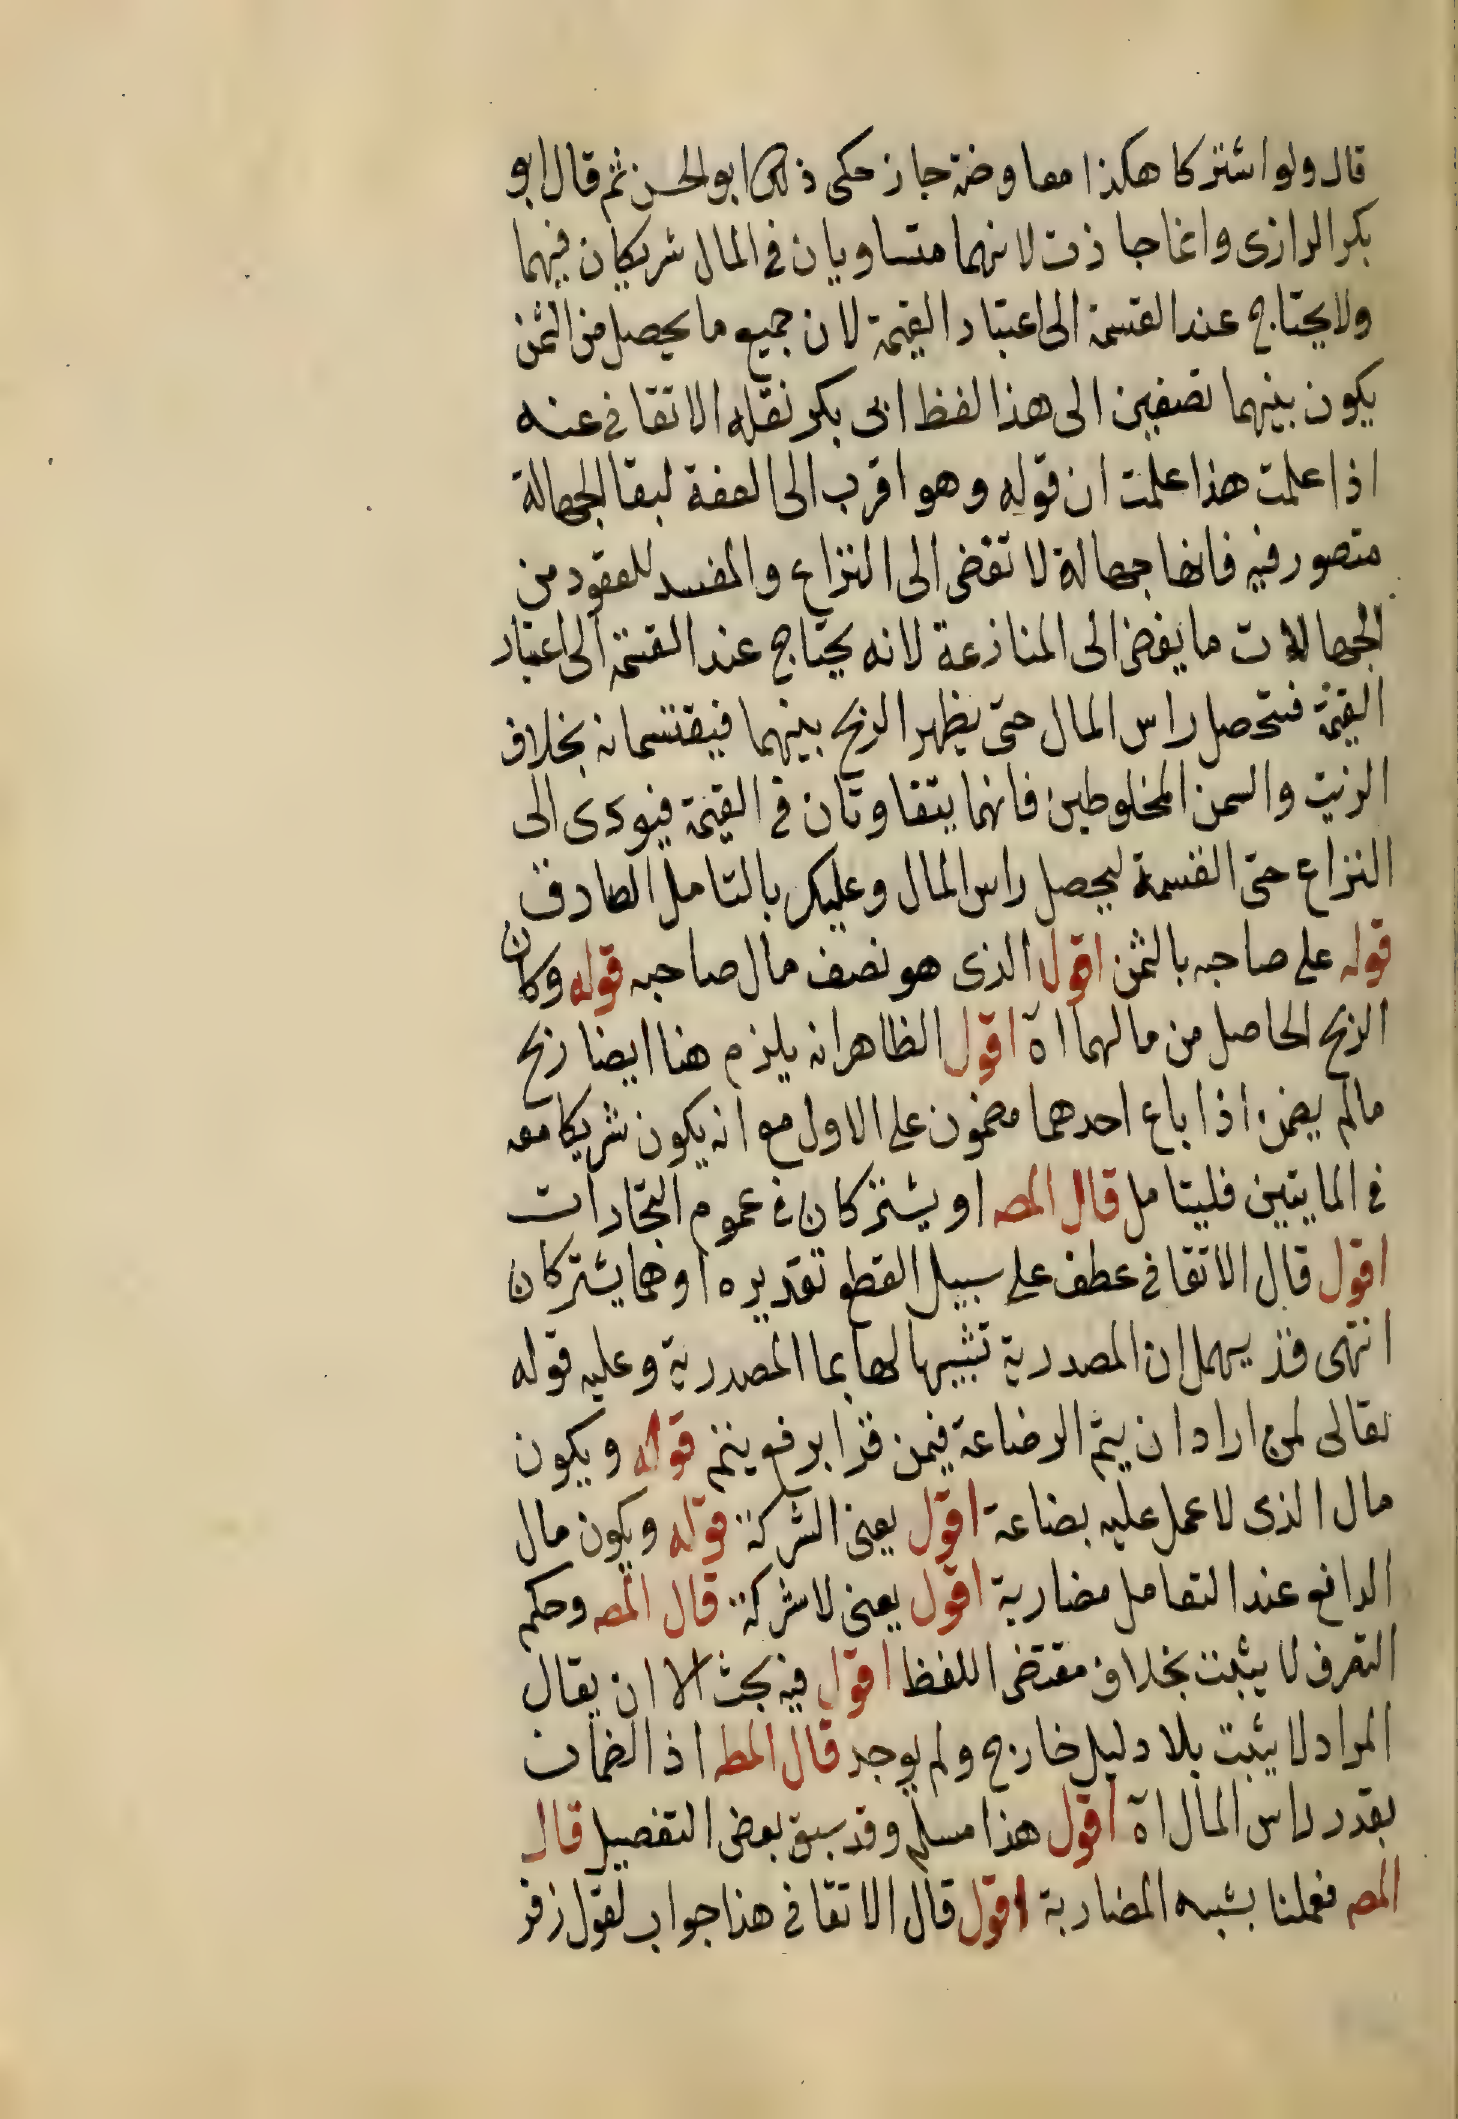 قال ولو اشتركا هكذا معاوضة جاز حكى ذلك ابو الحسن ثم قال ابو
بكر الرازى وانما جازت لانهما متساويان في المال شريكان فيهما
ولا يحتاج عند القسمة الى اعتبار القيمة لان جميع ما يحصل من الثمن
يكون بينهما نصفين الى هذا لفظ ابى بكر نقله الاتقانى عنه
اذا علمت هذا علمت ان قوله وهو اقرب الى الصفة لبقا الجهالة
متصور فيه فانها جهالة لا تفضى الى النزاع والمفسد للعقود من
الجهالات ما يفضى الى المنازعة لانه يحتاج عند القسمة الى اعتبار
القيمة فتحصل راس المال حتى يظهر الربح بينهما فيقتسمانه بخلاف
الزيت والسمن المخلوطين فانهما يتفاوتان في القيمة فيودى الى
النزاع حتى القسمة ليحصل راس المال وعليكم بالتامل الصادق
قوله على صاحبه بالثمن اقول الذى هو نصف مال صاحبه قوله وكان
الربح الحاصل من مالهما اه اقول الظاهر انه يلزم هنا ايضا ربح
مالم يضمن اذا باع احدهما مضمون على الاول مع انه يكون شريكا معه
في المايتين فليتامل قال المصه او يشتركان في عموم التجارات
اقول قال الاتقانى عطف على سبيل القطع تقديره او هما يشتركان
انتهى وقد يهمل ان المصدرية تشبيها لها بما المصدرية وعليه قوله
تعالى لمن اراد ان يتم الرضاعة فيمن قرا برفع يتم قوله ويكون
مال الذى لا عمل عليه بضاعة اقول يعنى الشركة قوله ويكون مال
الدافع عند التعامل مضاربة اقول يعنى لا شركة قال المصه وحكم
التصرف لا يثبت بخلاف مقتضى اللفظ اقول فيه بحث الا ان يقال
المراد لا يثبت بلا دليل خارج ولم يوجد قال المصه اذ الضمان
بقدر راس المال اه اقول هذا مسلم وقد سبق بعض التفصيل قال
المصه فعملنا بشبه المضاربة اقول قال الاتقانى هذا جواب لقول زفر